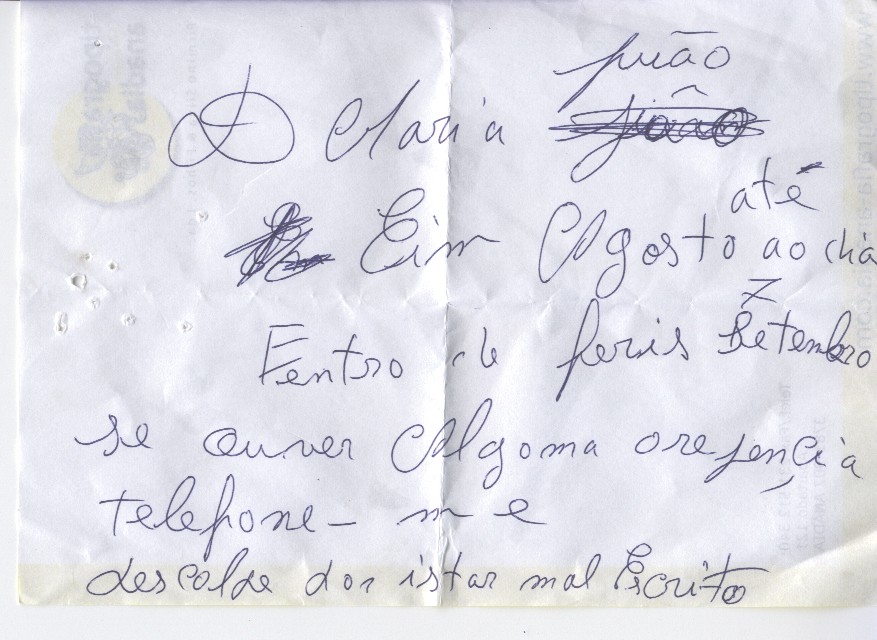 juão
D Maria
até
Eim Agosto ao chá
7
Eentro de feris Setembro
se ouver Algoma oregençia
telefone-me
descolde dor istar mal Escrito